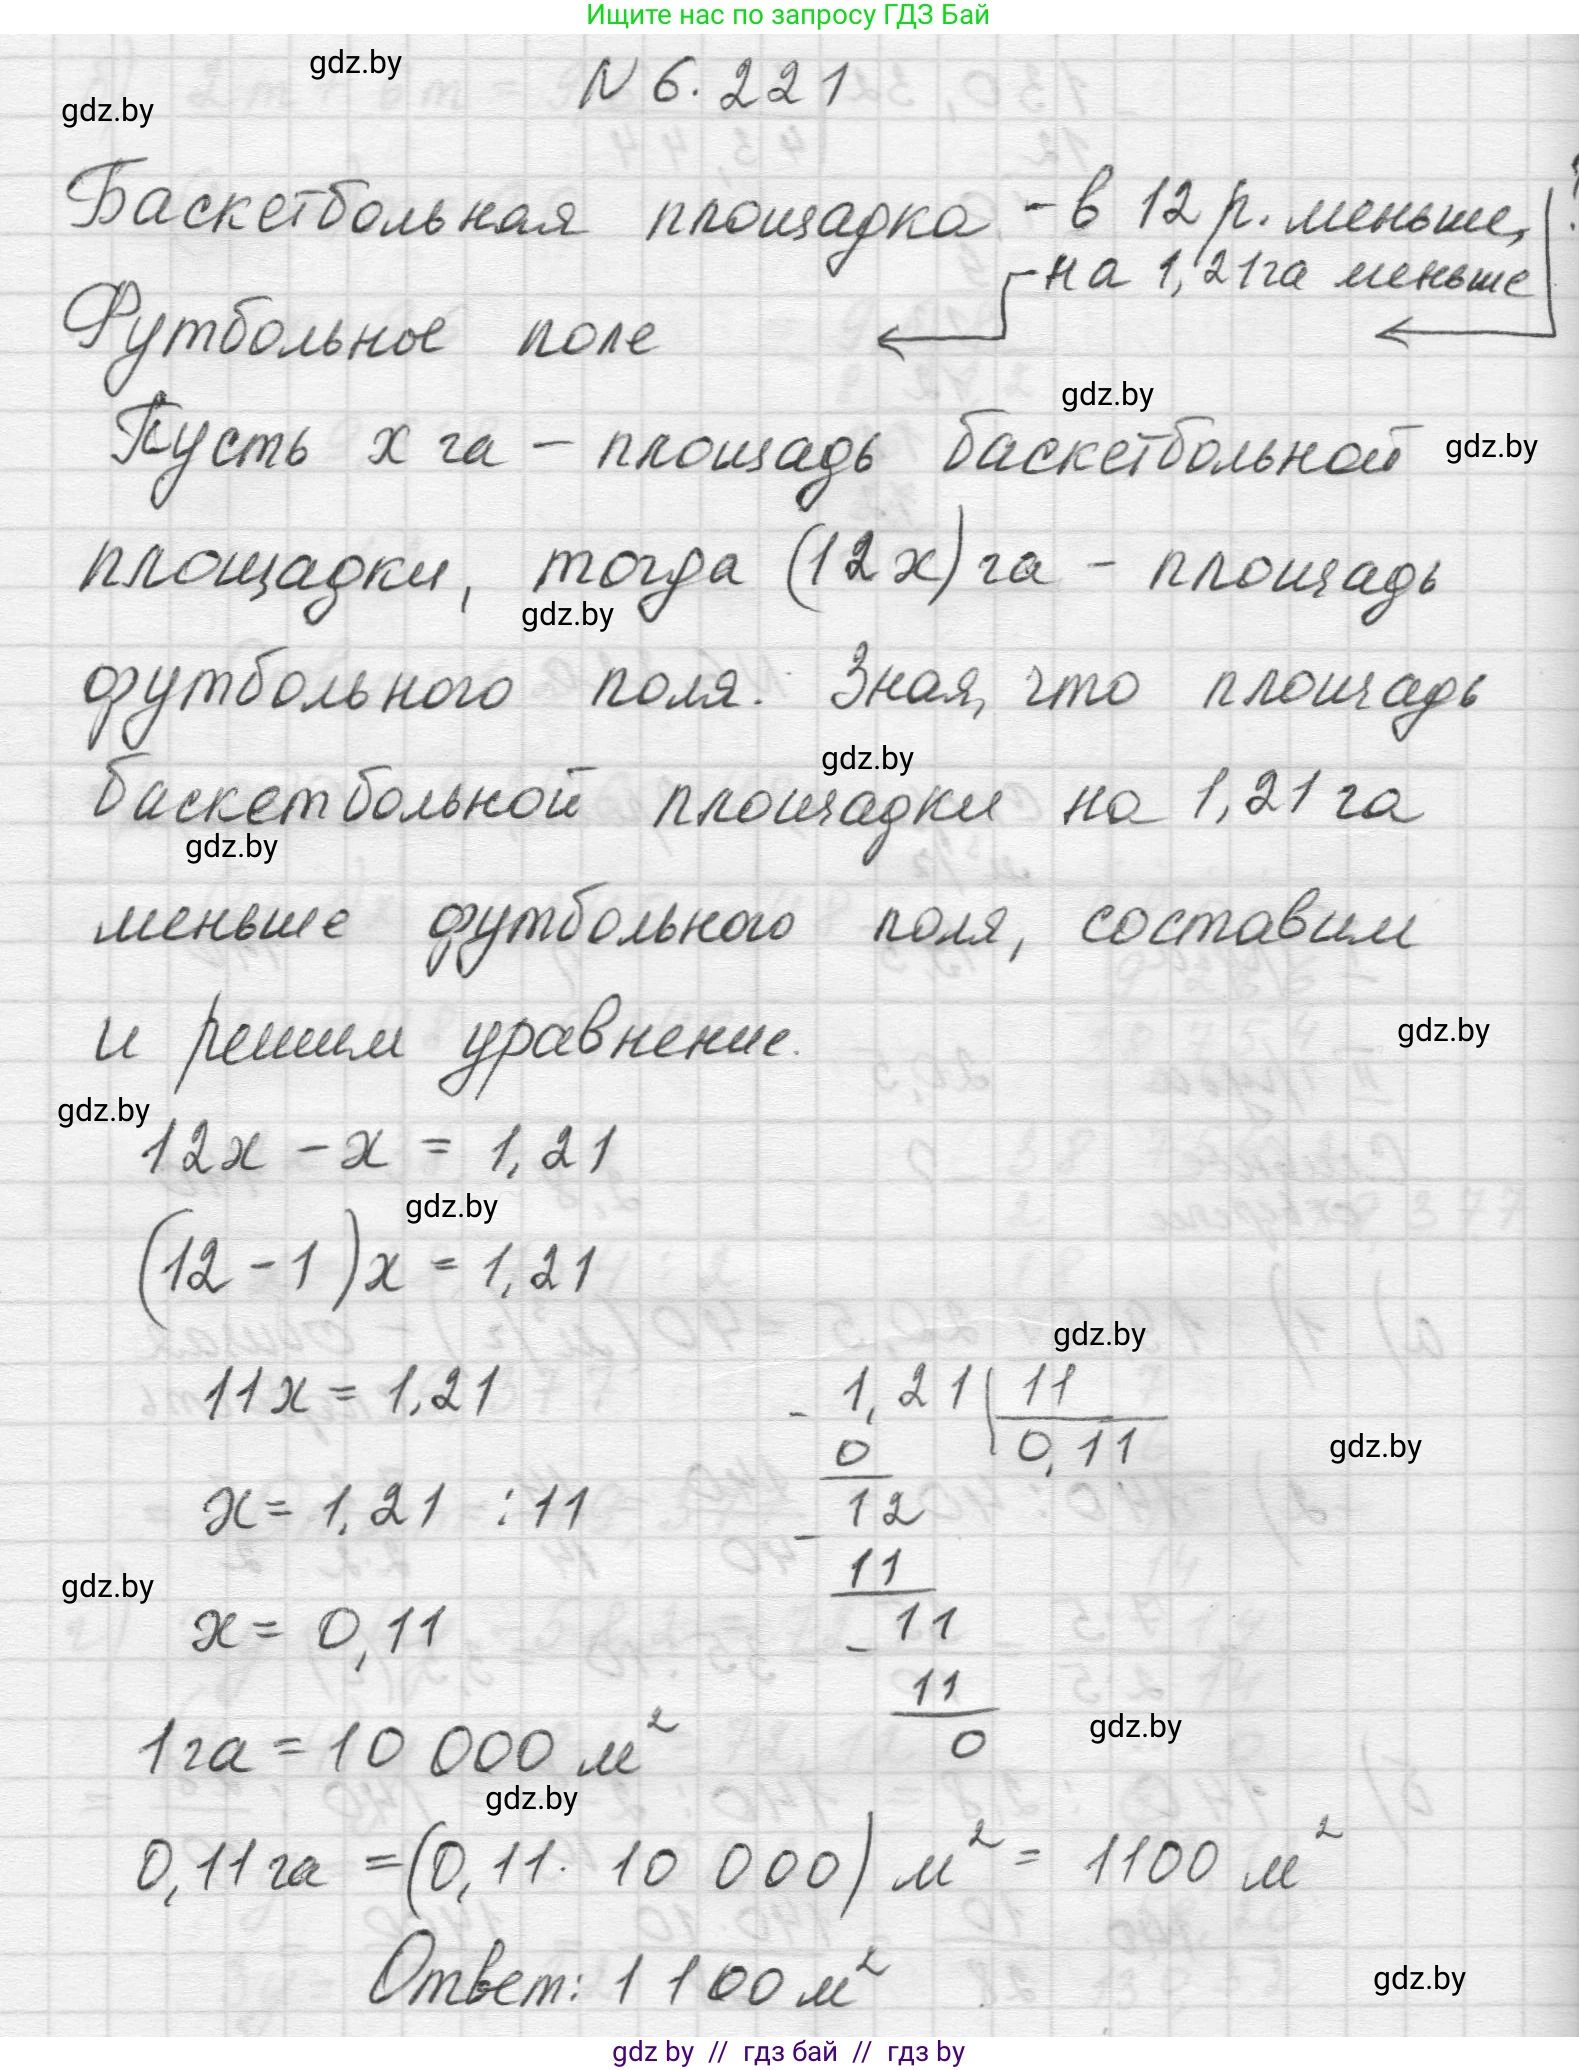 Ищите нас по запросу ГДЗ Бай
gdz.by
N 6.221
gdz.by
Баскетбольная площадка - в 12 р. меньше, ?
на 1,21 га меньше
Футбольное поле
gdz.by
Пусть x га - площадь баскетбольной
gdz.by
площадки, тогда (12x) га - площадь
gdz.by
футбольного поля. Зная, что площадь
gdz.by
баскетбольной площадки на 1,21 га
gdz.by
меньше футбольного поля, составим
и решим уравнение.
gdz.by
gdz.by
12x - x = 1,21
gdz.by
(12 - 1)x = 1,21
gdz.by
11x = 1,21
- 1,21 | 11
0 0,11
gdz.by
x = 1,21 : 11
- 12
11
gdz.by
x = 0,11
- 11
11
0
gdz.by
1 га = 10 000 м²
gdz.by
0,11 га = (0,11 · 10 000) м² = 1100 м²
Ответ: 1 100 м²
gdz.by
gdz by // гдз бай // гдз by